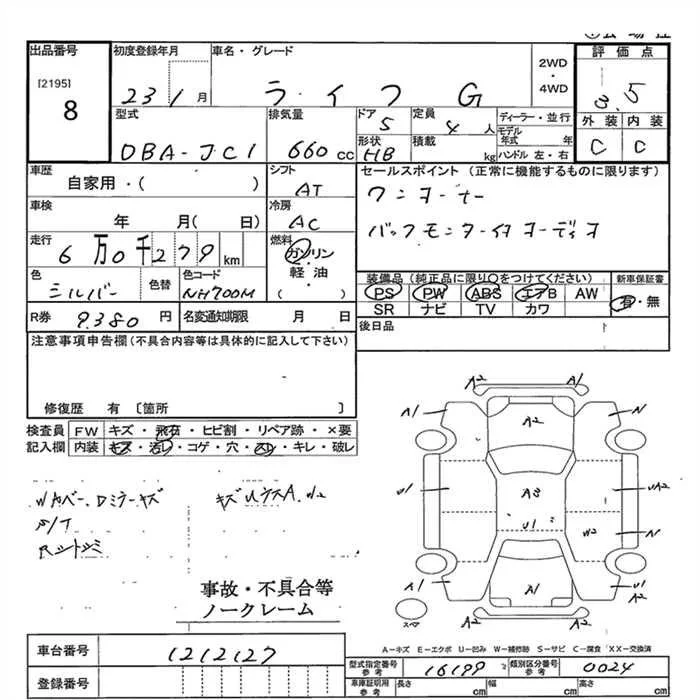 出品番号 初度登録年月 車名・グレード 2WD・4WD 評価点
[2195]
8 23 1月 ライフ G 3.5
型式 排気量 ドア 定員 ディーラー・並行 外装 内装
DBA-JC1 660cc 5 4人 モデル年式 年 C C
形状 積載 kg ハンドル 左・右
HB
車歴 シフト セールスポイント (正常に機能するものに限ります)
自家用・( ) AT ワンオーナー
車検 冷房
年 月( 日) AC バックモニター付オーディオ
走行 燃料
6万0千279km ガソリン・軽油・( )
色 色替 色コード 装備品 (純正品に限り○をつけてください) 新車保証書
シルバー NH700M PS PW ABS エアB AW 有・無
SR ナビ TV カワ
R券 9380円 名変通知期限 月 日 後日品
注意事項申告欄(不具合内容等は具体的に記入して下さい)
修復歴 有 〔箇所 〕
検査員 FW キズ・飛石・ヒビ割・リペア跡・×要
記入欄 内装 キズ・汚レ・コゲ・穴・スレ・キレ・破レ
A2 A1
A1 A2 N
U1 A3 UA2
U1 W2 N
A1 A1 U1 A2
A2 A2
スペア
事故・不具合等
ノークレーム
A－キズ E－エクボ U－凹み W－補修跡 S－サビ C－腐食 XX－交換済
車台番号 1212127
登録番号
型式指定番号 参考 16199 類別区分番号 参考 0024
車庫証明用 参考 長さ cm 幅 cm 高さ cm